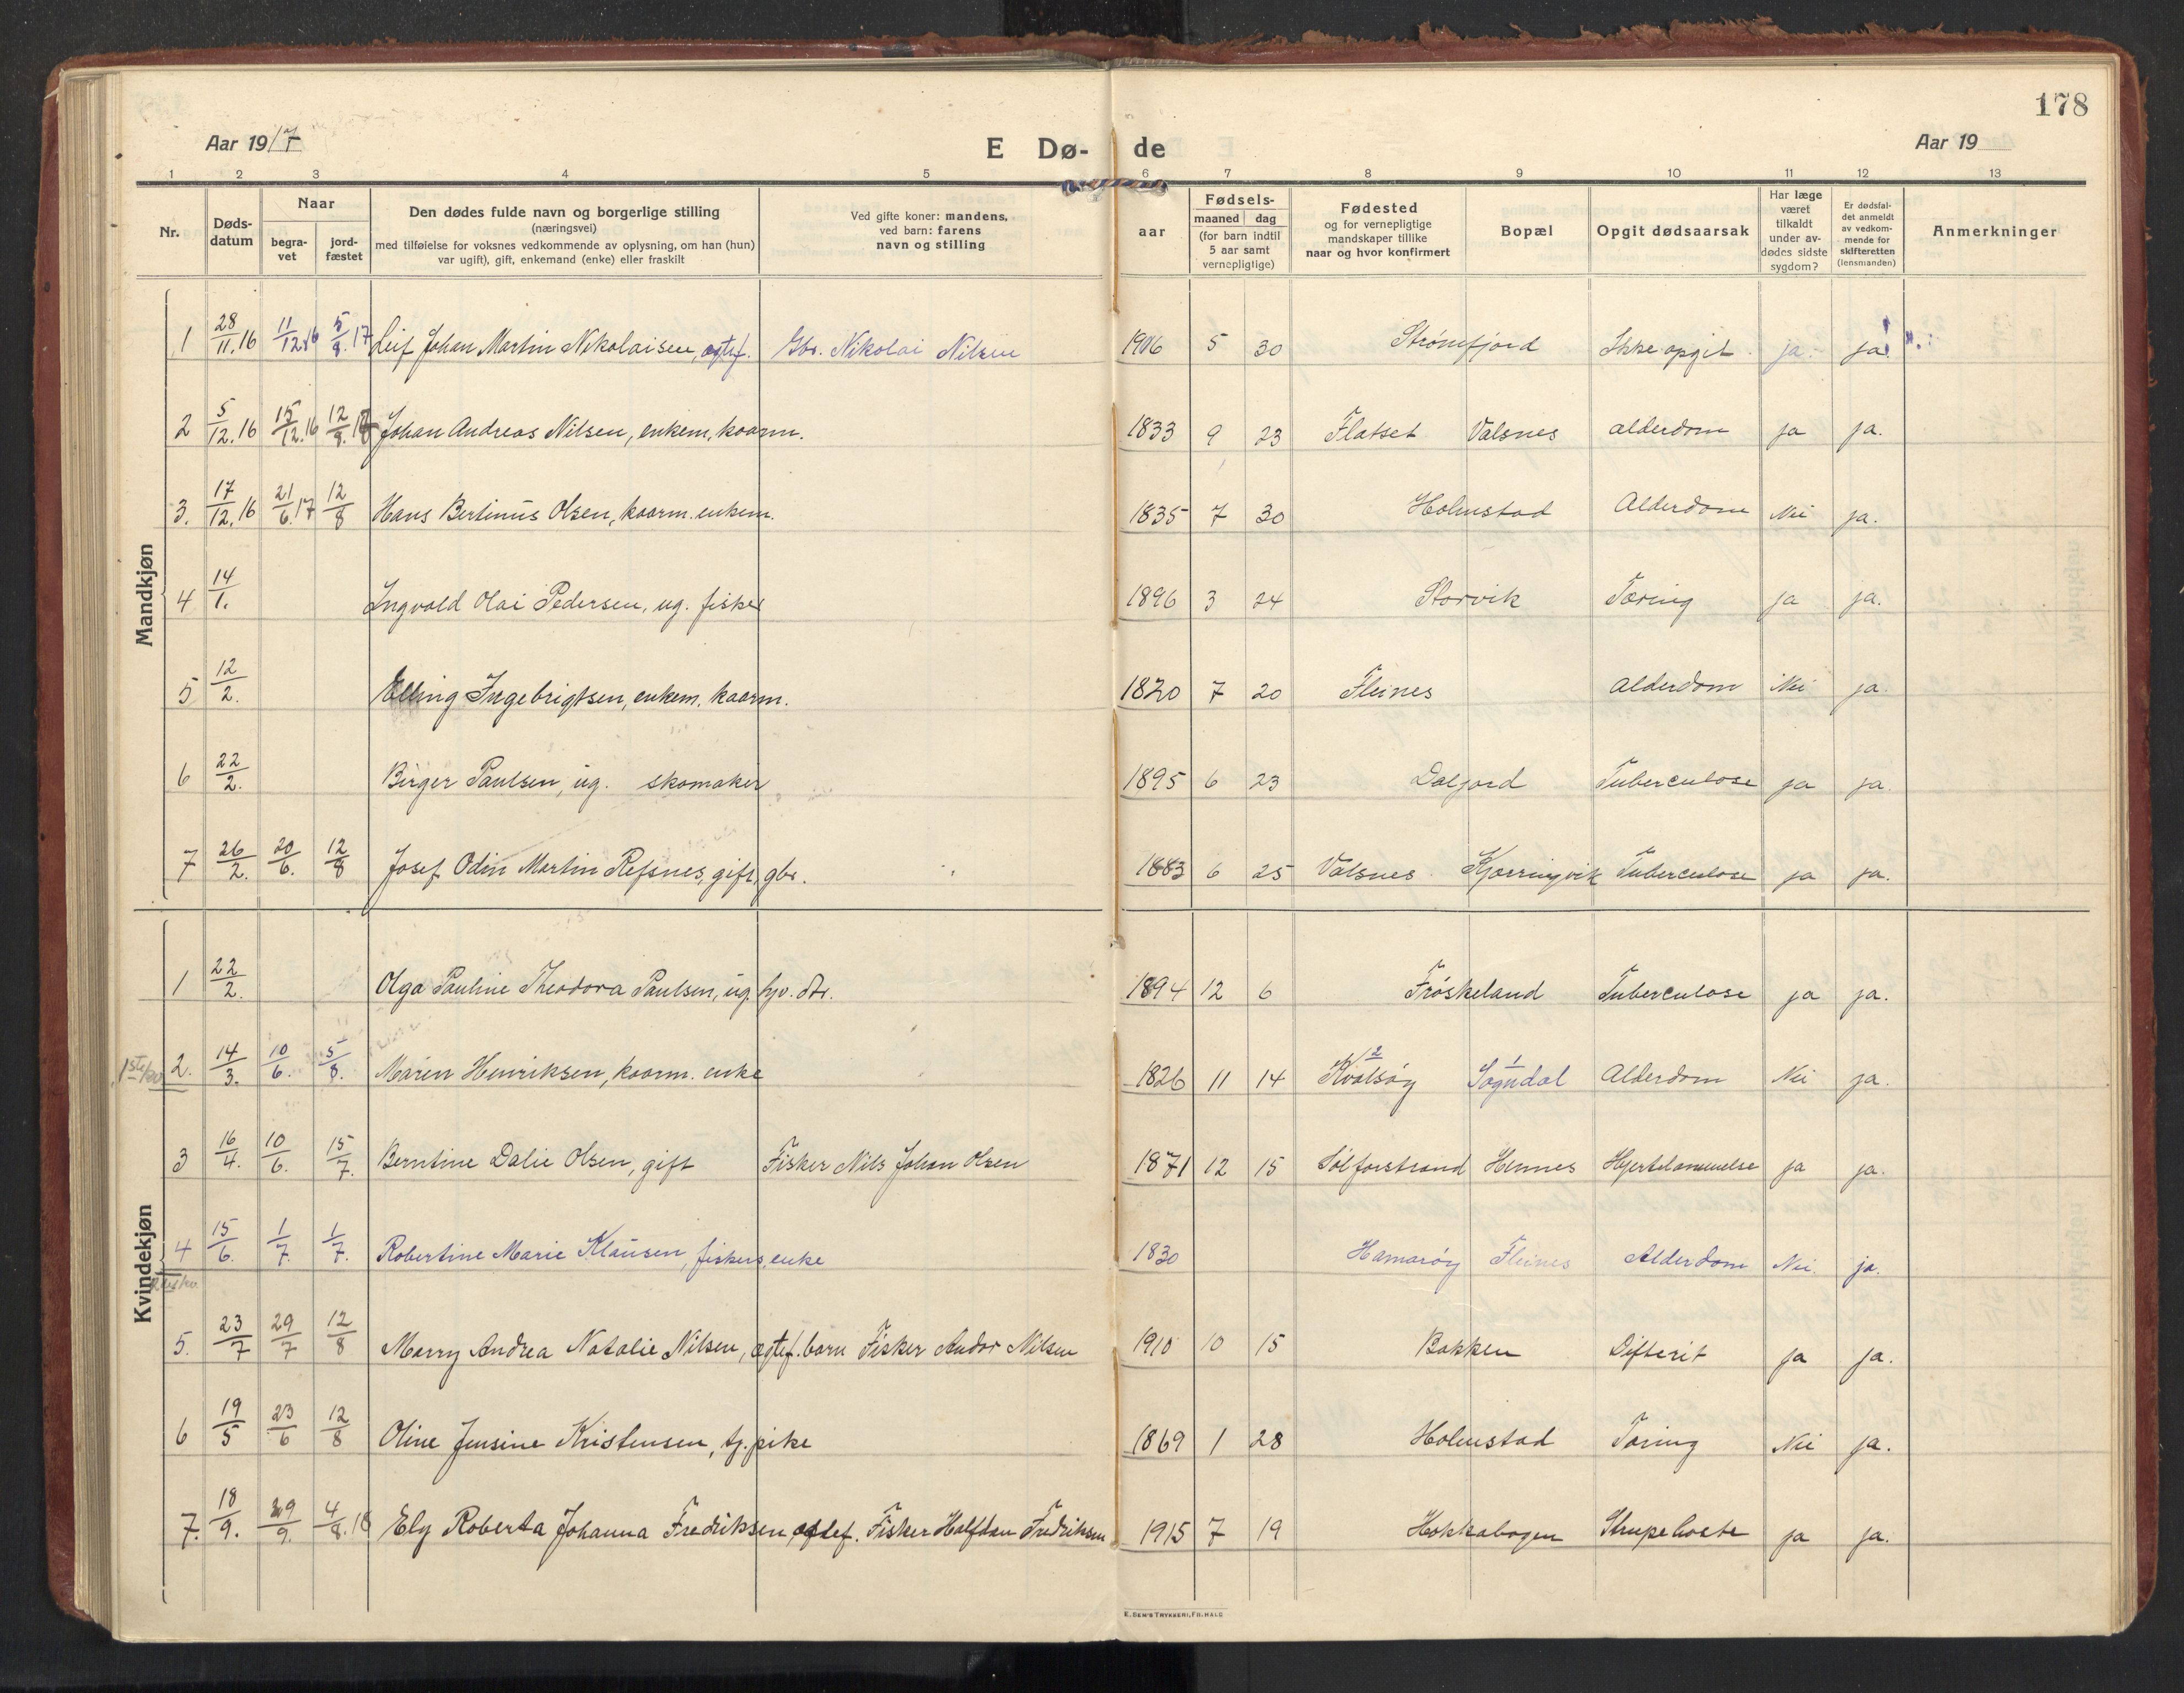 178
Aar 1917 E Dø- de Aar 19
1 2 3 4 5 6 7 8 9 10 11 12 13
Nr. Døds-datum Naar begra-vet jord-fæstet Den dødes fulde navn og borgerlige stilling (næringsvei) med tilføielse for voksnes vedkommende av oplysning, om han (hun) var ugift), gift, enkemand (enke) eller fraskilt Ved gifte koner: mandens, ved barn: farens navn og stilling aar Fødsels- maaned dag (for barn indtil 5 aar samt vernepligtige) Fødested og for vernepligtige mandskaper tillike naar og hvor konfirmert Bopæl Opgit dødsaarsak Har læge været tilkaldt under av-dødes sidste sygdom? Er dødsfal-det anmeldt av vedkom-mende for skifteretten (lensmanden) Anmerkninger
Mandkjøn
1 28/11.16 11/12.16 5/8.17 Leif Johan Martin Nikolaisen, egtef. Gbr. Nikolai Nilsen 1906 5 30 Strømfjord Ikke opgit ja. ja.
2 5/12.16 15/12.16 12/8. Johan Andreas Nilsen, enkem, kaarm. 1833 9 23 Flatset Valsnes alderdom ja ja.
3. 17/12.16 21/6.17 12/8 Hans Bertinus Olsen, kaarm. enkem. 1835 7 30 Holmstad Alderdom Nei ja.
4 14/1. Ingvald Olai Pedersen, ug. fisker 1896 3 24 Storvik Tæring ja ja.
5 12/2. Elling Ingebrigtsen, enkem. kaarm. 1820 7 20 Fleines Alderdom Nei ja.
6 22/2. Birger Paulsen, ug. skomaker 1895 6 23 Dalfjord Tuberculose ja ja.
7 26/2. 20/6. 12/8 Josef Odin Martin Refsnes, gift, gbr. 1883 6 25 Valsnes Kjærringvik Tuberculose ja ja.
Kvindekjøn
1 22/2. Olga Pauline Theodora Paulsen, ug. hjv. dtr. 1894 12 6 Frøskeland Tuberculose ja ja.
1ste/kv 2. 14/3. 10/6. 5/8. Maren Henriksen, kaarm. enke 1826 11 14 Kvalsøy 2 Sogndal 1 Alderdom Nei ja.
3 16/4. 10/6. 15/7. Berntine Dalie Olsen, gift Fisker Nils Johan Olsen 1871 12 15 Hennes Hjertelammelse ja ja.
4 15/6. 1/7. 1/7. Robertine Marie Klausen, fiskers enke 1830 Hamarøy Fleines Alderdom Nei. ja.
5. 23/7 29/7 12/8 Marry Andrea Natalie Nilsen, egtef. barn Fisker Andor Nilsen 1910 10 15 Bakken Difterit ja ja.
6 19/5 23/6 12/8 Oline Jensine Kristensen, tj. pike 1869 1 28 Holmstad Tæring Nei ja.
7. 18/9. 29/9. 4/8.18 Ely Roberta Johanna Fredriksen, egtef. Fisker Halfdan Fredriksen 1915 7 19 Hokkabogen Strupehoste ja ja.
E. SEM'S TRYKKERI, FR.HALD